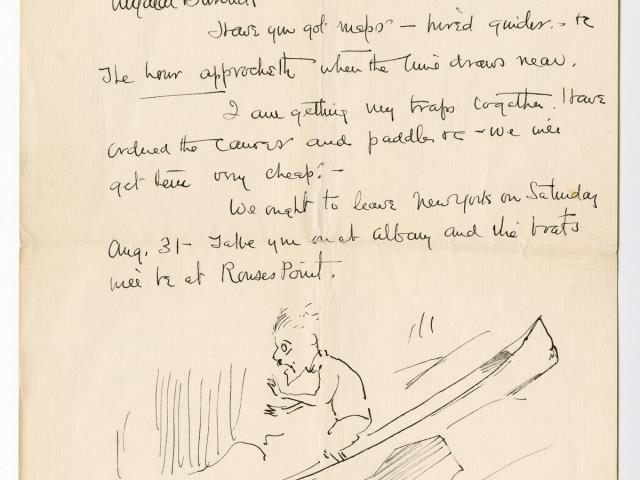 My dear
Have you got maps — hired guides. - &c
The hour approcheth when the time draws near.
I am getting my traps together. Have
ordered the canoes and paddles &c - we will
get them very cheap. -
We ought to leave New York on Saturday
Aug. 31 - Take you on at Albany and the boats
will be at Rouses Point.